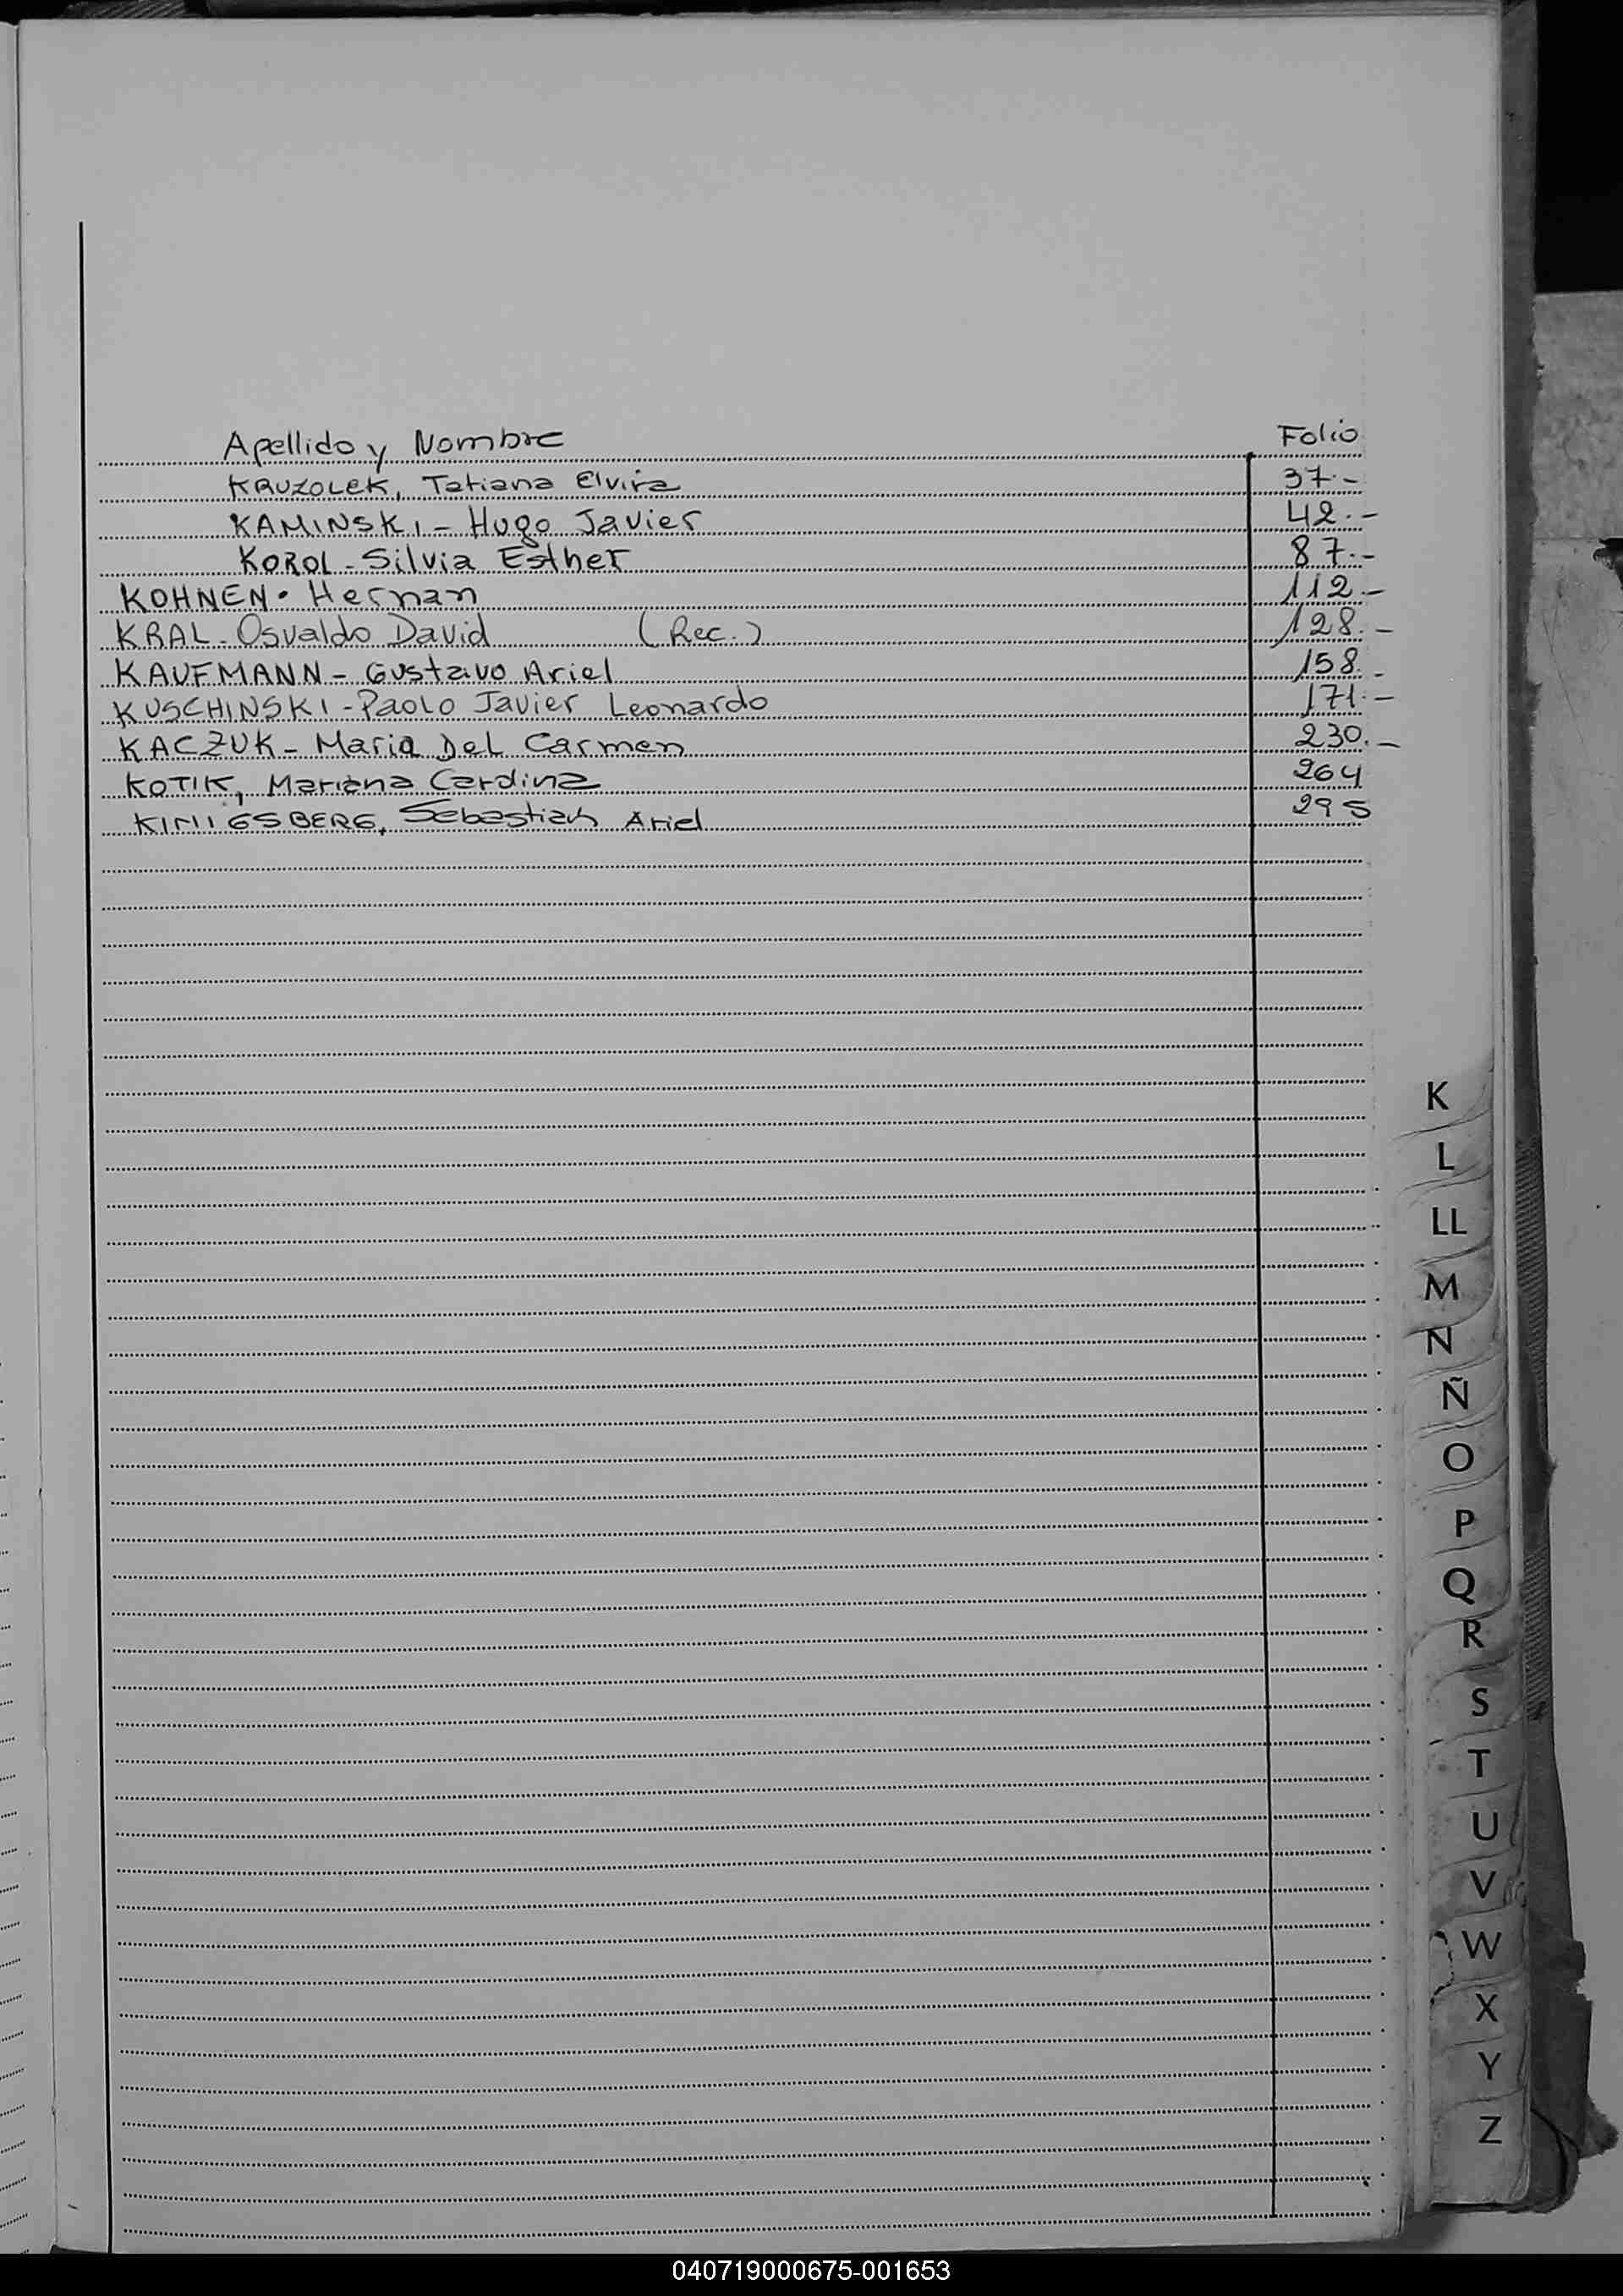 Apellido y Nombre Folio
KRUZOLEK, Tatiana Elvira 37.-
KAMINSKI - Hugo Javier 42.-
KOROL - Silvia Esther 87.-
KOHNEN. Hernan 112.-
KRAL - Osvaldo David (Rec.) 128.-
KAUFMANN - Gustavo Ariel 158.-
KUSCHINSKI - Paolo Javier Leonardo 171.-
KACZUK - Maria Del Carmen 230.-
KOTIK, Mariana Cardina 264
KINIGSBERG, Sebastian Ariel 295
K
L
LL
M
N
Ñ
O
P
Q
R
S
T
U
V
W
X
Y
Z
040719000675-001653